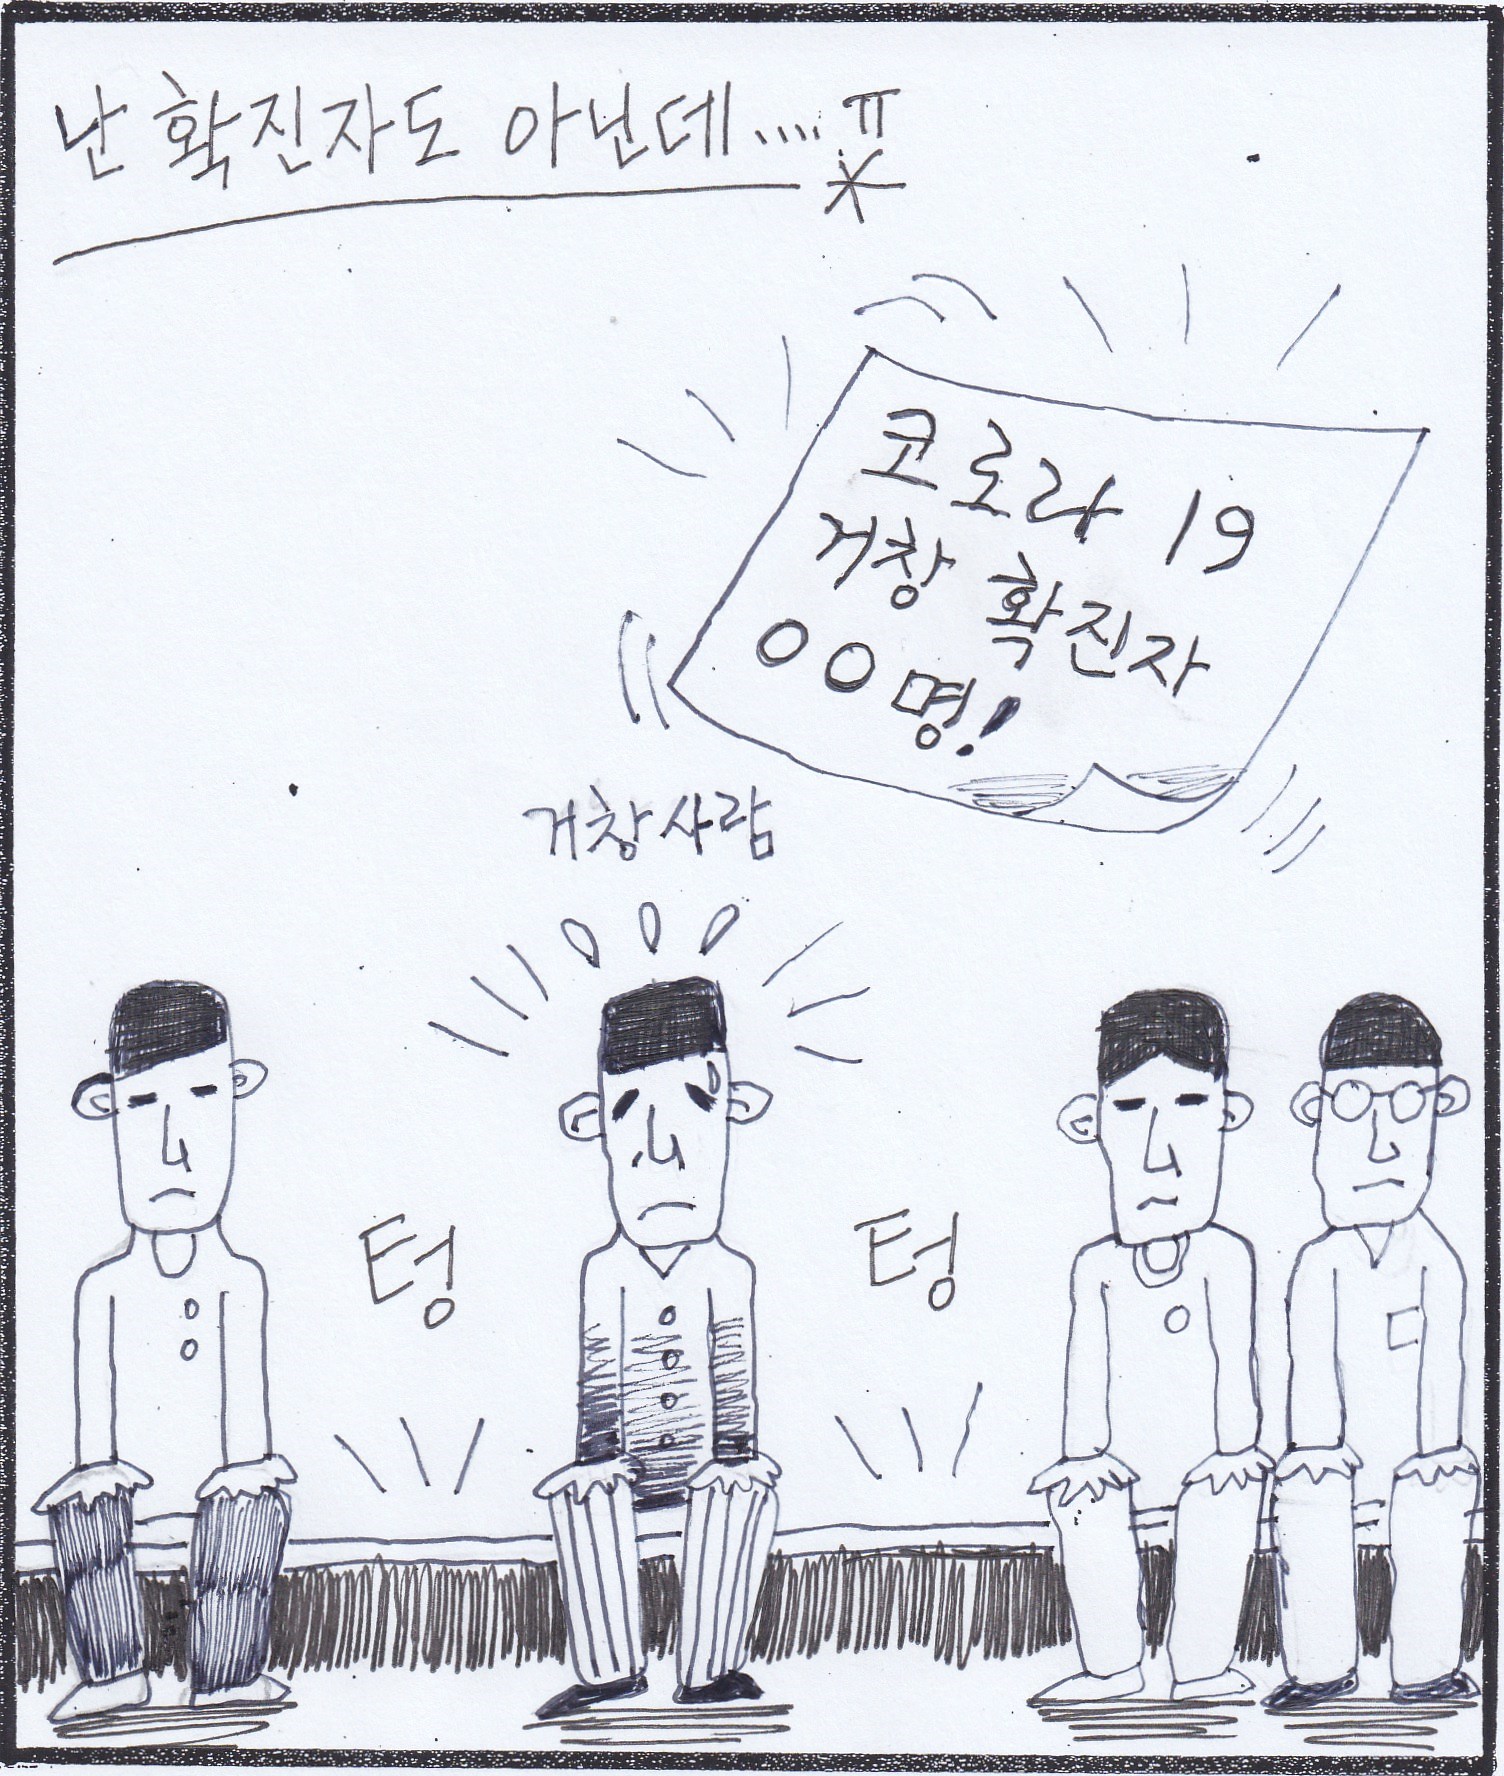 난 확진자도 아닌데.... ㅠ
코로라 19
거창 확진자
○○명!
거창사람
텅
텅